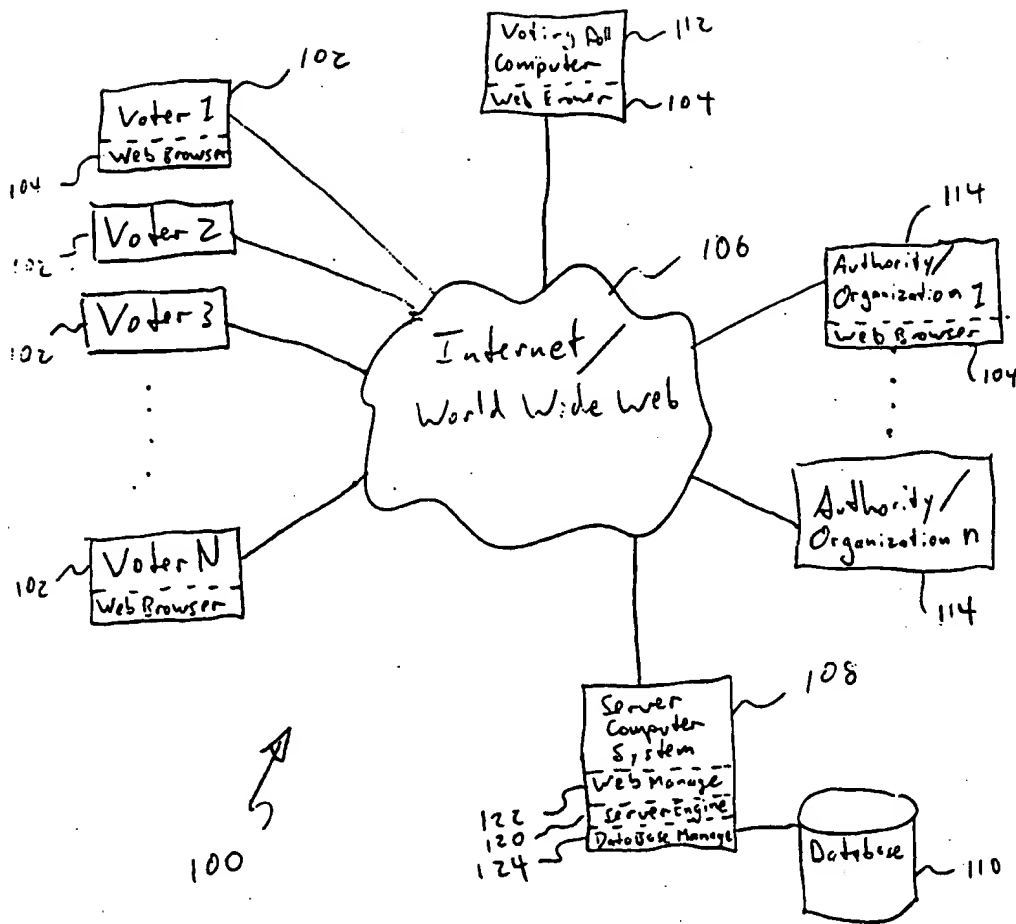 Voting Poll
Computer
Web Browser
112
104
102
Voter 1
Web Browser
104
Voter 2
102
Voter 3
102
106
Internet /
World Wide Web
114
Authority /
Organization 1
Web Browser
104
Authority /
Organization n
114
Voter N
Web Browser
102
108
Server
Computer
System
Web Manage
Server Engine
DataBase Manage
122
120
124
Database
110
100